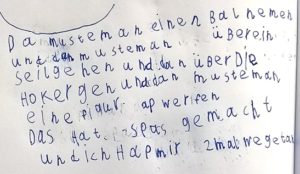 Da musteman einen Balnemen
und dan musteman über ein
seilgehen und dan über Die
Hokergen und dan musteman
eine figur apwerfen
Das Hat spas gemacht
und ich Hap mir 2mal wegetan